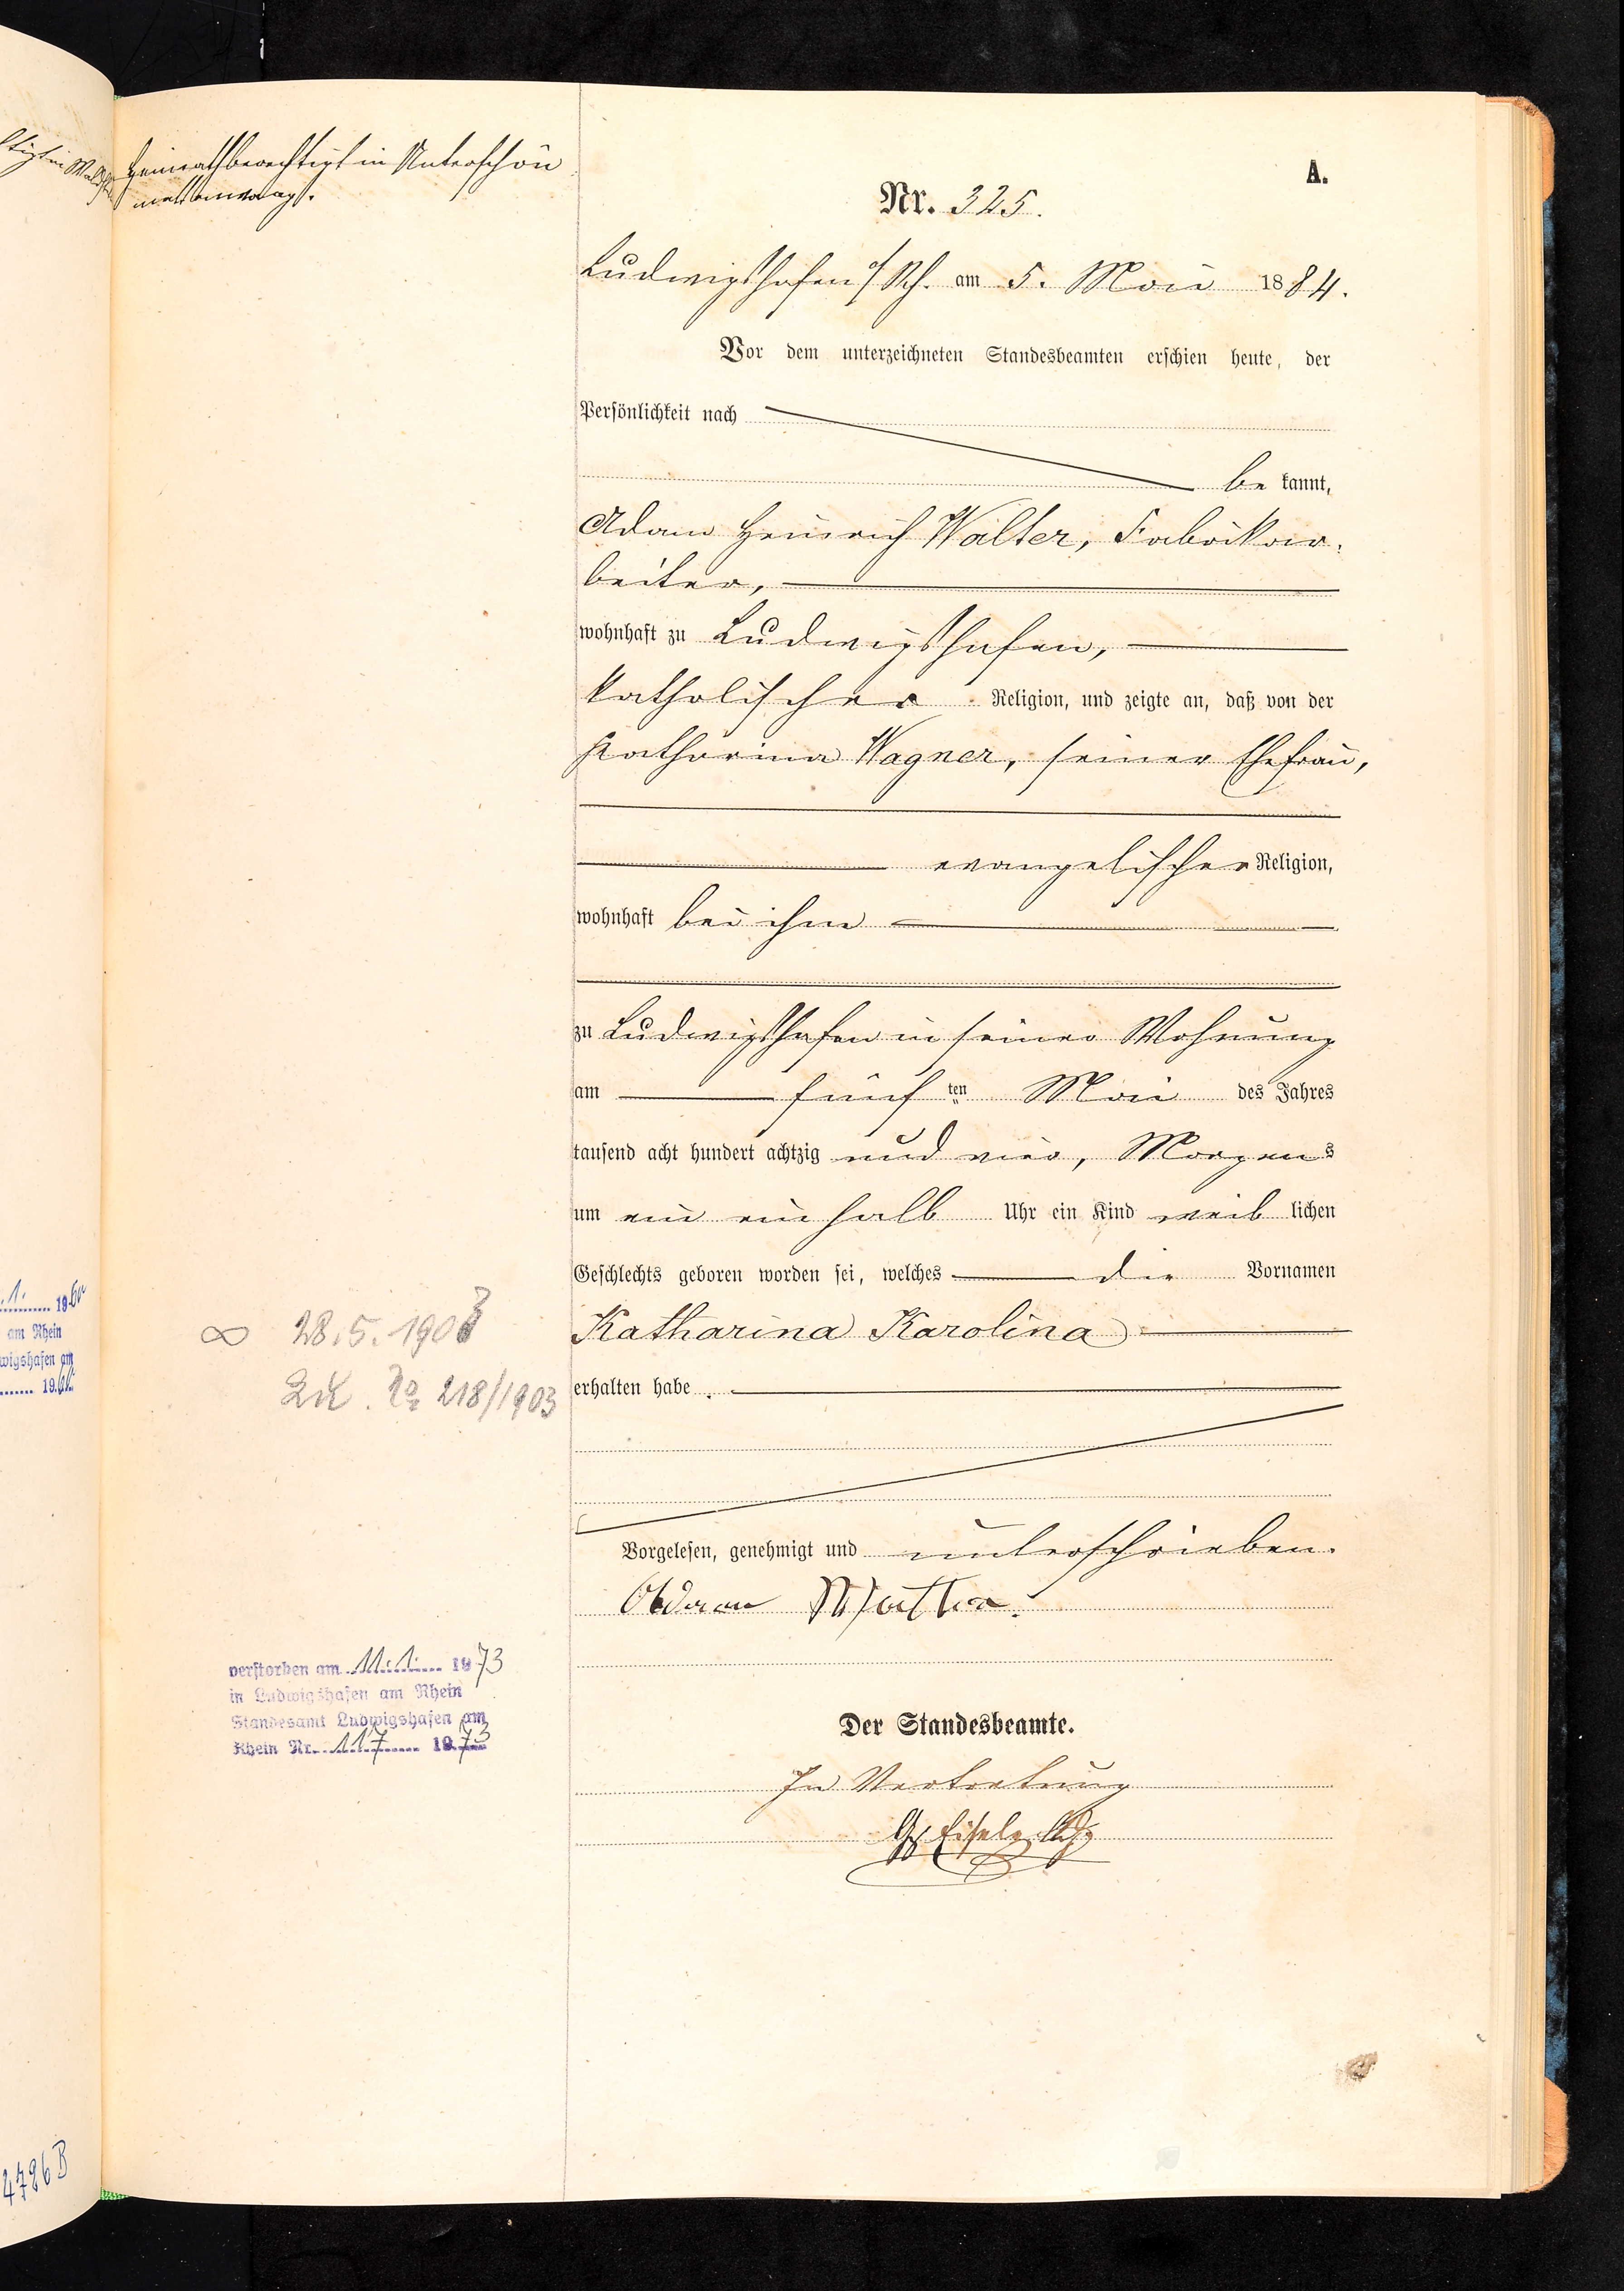 Heimathberechtigt in Unterschön
mattenwag.
A.
Nr. 325.
Ludwigshafen a/Rh. am 5. Mai 1884.
Vor dem unterzeichneten Standesbeamten erschien heute, der
Persönlichkeit nach
be kannt,
Adam Heinrich Walter, Fabrikar-
beiter,
wohnhaft zu Ludwigshafen,
katholischer Religion, und zeigte an, daß von der
Katharina Wagner, seiner Ehefrau,
evangelischer Religion,
wohnhaft bei ihm
zu Ludwigshafen in seiner Wohnung
am fünf ten Mai des Jahres
tausend acht hundert achtzig und vier, Morgens
um ein ein halb Uhr ein Kind weib lichen
Geschlechts geboren worden sei, welches die Vornamen
Katharina Karolina
erhalten habe.
∞ 28.5.1903
No 218/1903
Vorgelesen, genehmigt und unterschrieben.
Adam Walter.
verstorben am 11.1. 1973
in Ludwigshafen am Rhein
Standesamt Ludwigshafen am
Rhein Nr. 117 1973
Der Standesbeamte.
In Vertretung
1. 19
am Rhein
wigshafen am
19
4786 B